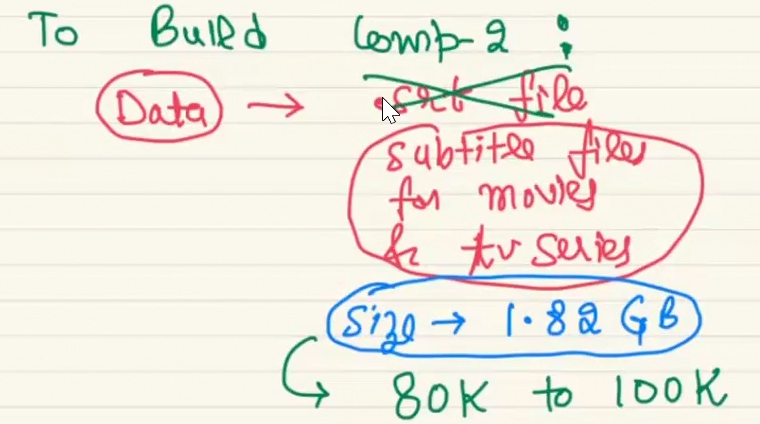 To Build Comp-2 :
Data → .srt file
subtitle files
for movies
& tv series
Size → 1.82 GB
80K to 100K